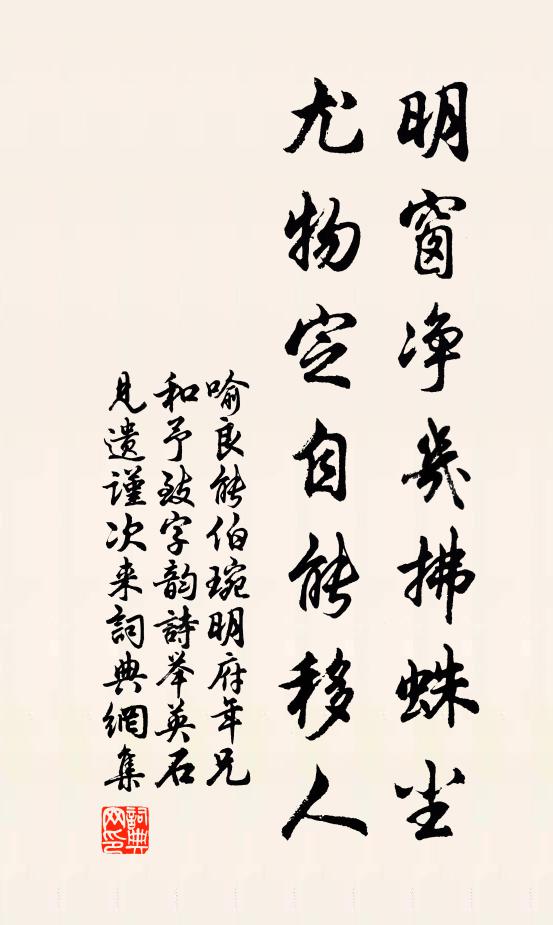 明窗净几拂蛛尘
尤物定自能移人
喻良能伯琬明府年兄
和予致字韵詩举英石
見遗谨次来詞典網集
詞典网印